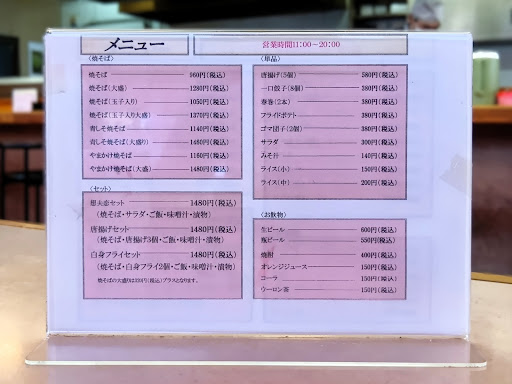 メニュー
営業時間11:00～20:00
(焼そば)
焼そば 960円(税込)
焼そば(大盛) 1280円(税込)
焼そば(玉子入り) 1050円(税込)
焼そば(玉子入り大盛) 1370円(税込)
青しそ焼そば 1140円(税込)
青しそ焼そば(大盛り) 1460円(税込)
やまかけ焼そば 1160円(税込)
やまかけ焼そば(大盛) 1480円(税込)
(セット)
想夫恋セット 1480円(税込)
(焼そば・サラダ・ご飯・味噌汁・漬物)
唐揚げセット 1480円(税込)
(焼そば・唐揚げ3個・ご飯・味噌汁・漬物)
白身フライセット 1480円(税込)
(焼そば・白身フライ2個・ご飯・味噌汁・漬物)
焼そばの大盛りは320円(税込)プラスとなります。
(単品)
唐揚げ(5個) 580円(税込)
一口餃子(8個) 380円(税込)
春巻(2本) 380円(税込)
フライドポテト 380円(税込)
ゴマ団子(2個) 380円(税込)
サラダ 300円(税込)
みそ汁 140円(税込)
ライス(小) 150円(税込)
ライス(中) 200円(税込)
(お飲物)
生ビール 600円(税込)
瓶ビール 550円(税込)
焼酎 400円(税込)
オレンジジュース 150円(税込)
コーラ 150円(税込)
ウーロン茶 150円(税込)